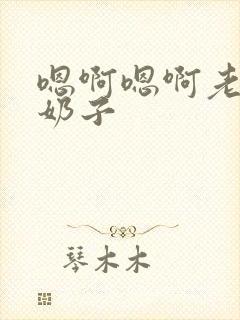 嗯啊嗯啊老
奶子
琴木木